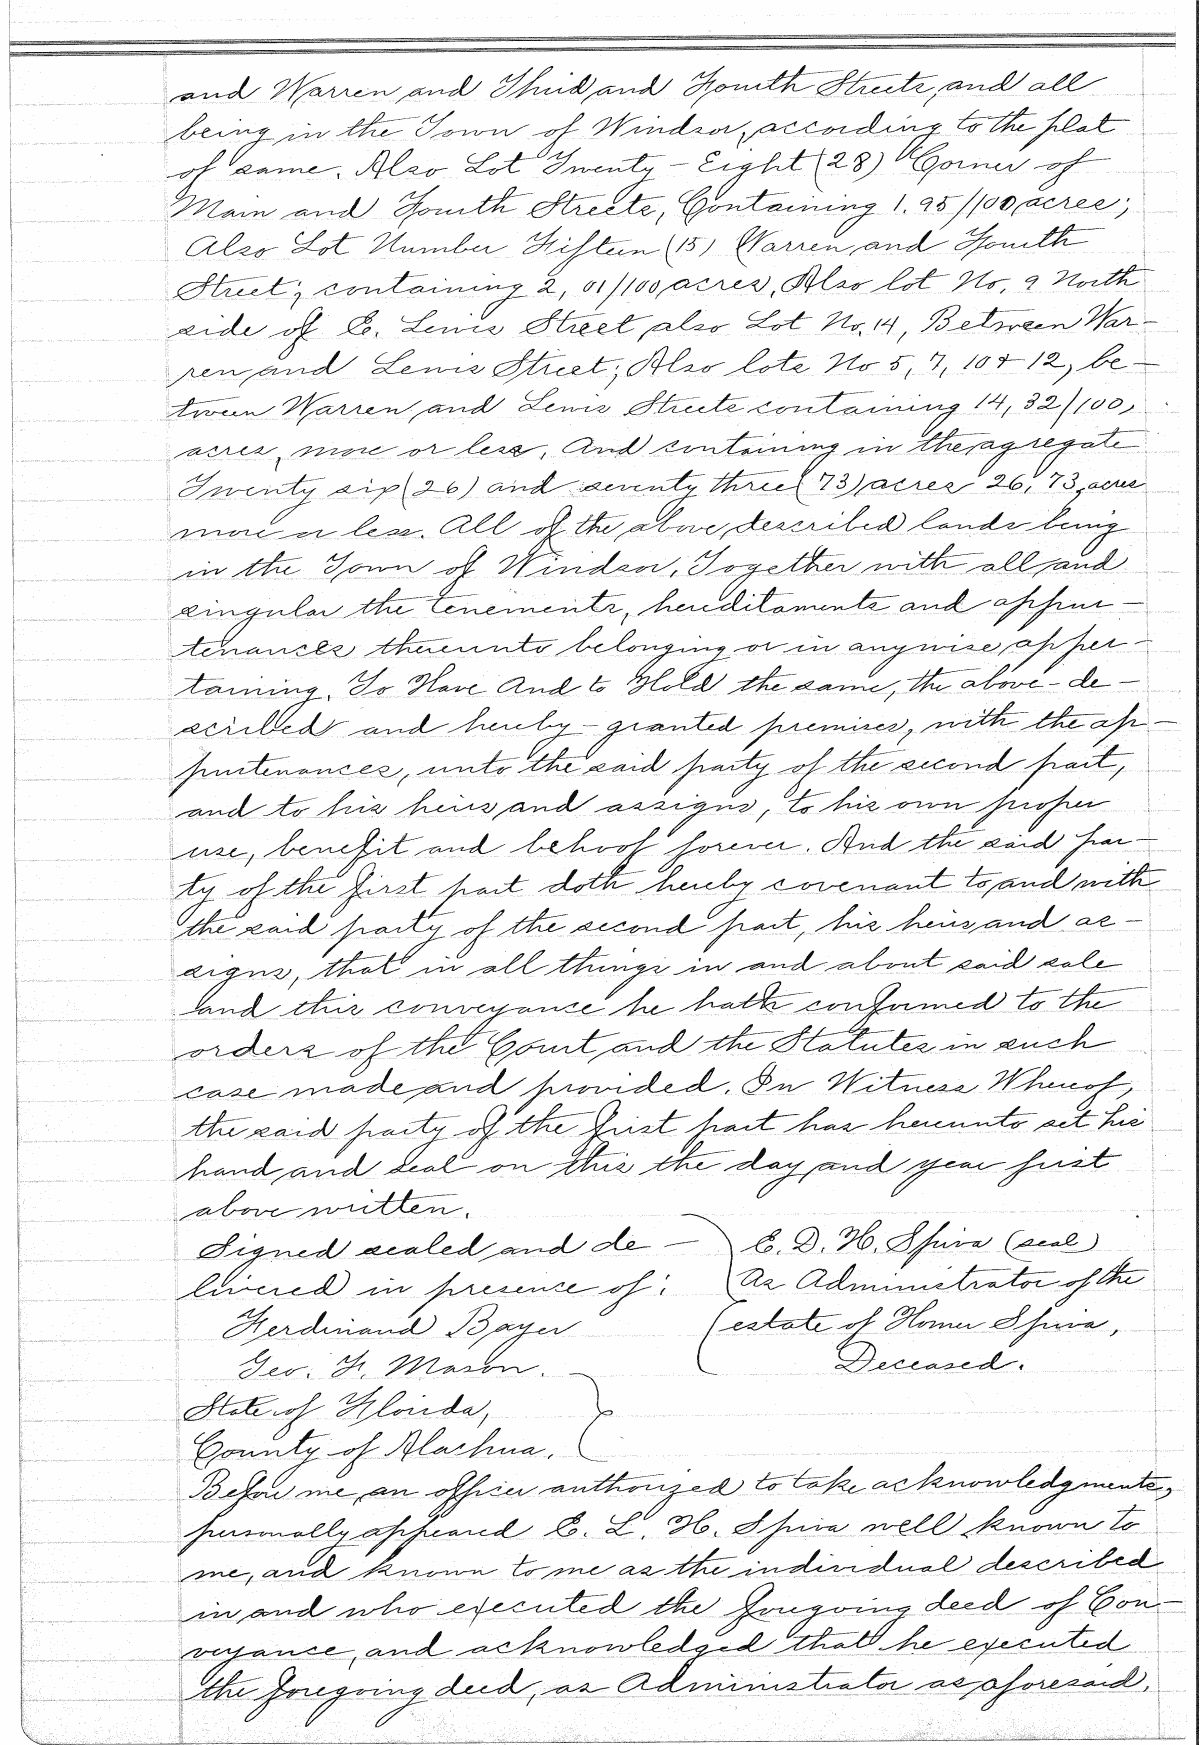 and Warren and Third and Fourth Streets, and all
being in the Town of Windsor, according to the plat
of same. Also Lot Twenty-Eight (28) Corner of
Main and Fourth Streets, Containing 1.95/100 acres;
Also Lot Number Fifteen (15) Warren and Fourth
Street; containing 2, 01/100 acres, Also lot No. 9 North
side of E. Lewis Street, also Lot No. 14, Between War-
ren and Lewis Street; Also lots No 5, 7, 10 + 12, be-
tween Warren and Lewis Streets containing 14, 32/100,
acres, more or less. And containing in the agregate
Twenty six (26) and seventy three (73) acres 26, 73 acres
more or less. All of the above described lands being
in the Town of Windsor, Together with all and
singular the tenements, hereditaments and appur-
tenances thereunto belonging or in anywise apper-
taining. To Have And to Hold the same, the above-de-
scribed and hereby-granted premises, with the ap-
purtenances, unto the said party of the second part,
and to his heirs and assigns, to his own proper
use, benefit and behoof forever. And the said par-
ty of the first part doth hereby covenant to and with
the said party of the second part, his heirs and as-
signs, that in all things in and about said sale
and this conveyance he hath conformed to the
orders of the Court and the Statutes in such
case made and provided. In Witness Whereof,
the said party of the first part has hereunto set his
hand and seal on this the day and year first
above written.
Signed sealed and de- E. D. H. Spiva (seal)
livered in presence of: As Administrator of the
Ferdinand Bayer estate of Homer Spiva,
Geo. F. Mason. Deceased.
State of Florida,
County of Alachua.
Before me, an officer authorized to take acknowledgments,
personally appeared E. L. H. Spiva well known to
me, and known to me as the individual described
in and who executed the foregoing deed of Con-
veyance, and acknowledged that he executed
the foregoing deed, as Administrator as aforesaid.